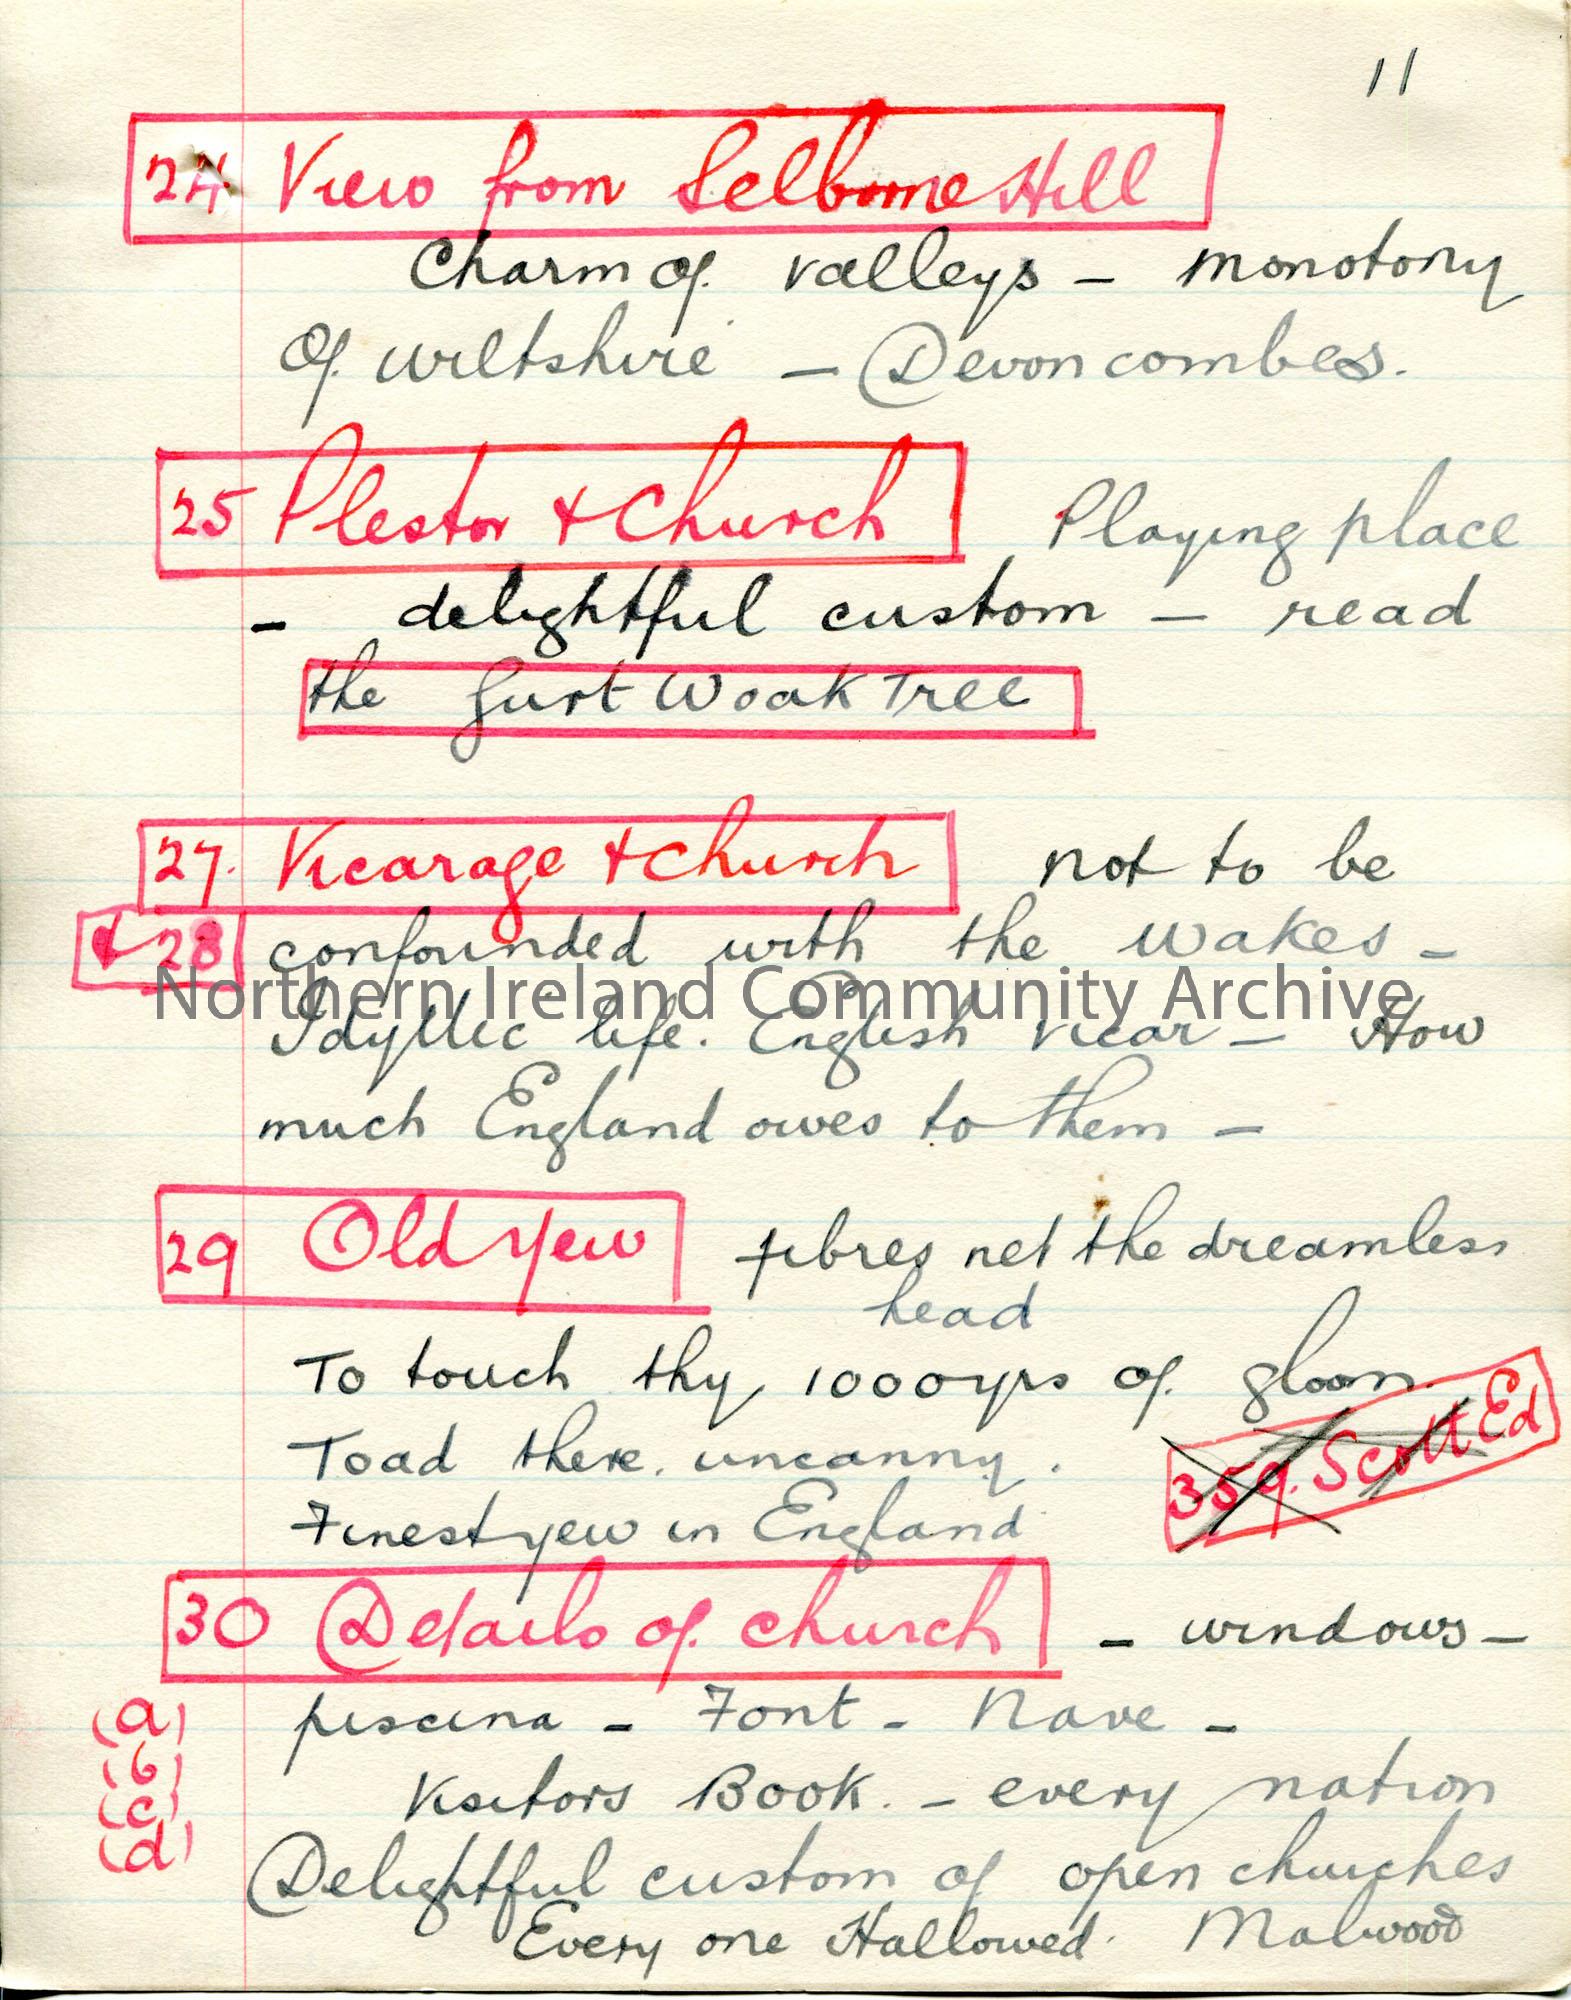 11
24 View from Selborne Hill
Charm of valleys - monotony
Of wiltshire - Devon combes.
25 Plestor + Church Playing place
- delightful custom - read
the Gurt Woak Tree
27. Vicarage + Church not to be
+ 28 confounded with the Wakes -
Northern Ireland Community Archive
Idyllic life. English vicar - How
much England owes to them -
29 Old Yew fibres net the dreamless
head
To touch thy 1000yrs of gloom.
Toad there. uncanny.
359. Scott Ed
Finest yew in England
30 Details of church - windows -
(a) piscina - Font - Nave -
(b)
(c) Visitors Book. - every nation
(d)
Delightful custom of open churches
Every one Hallowed. Malwood